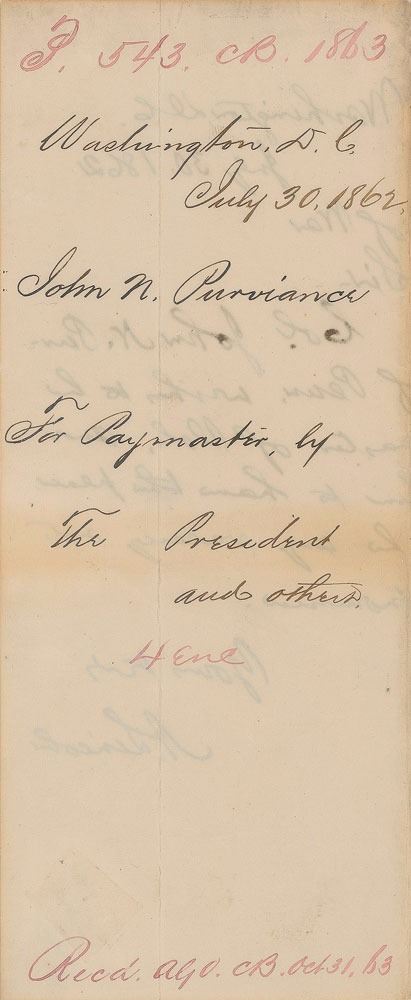 P. 543. CB. 1863
Washington, D. C.
July 30, 1862.
John N. Purviance
For Paymaster, by
The President
and others.
4 Enc
Recd. AGO. CB. Oct 31, 63